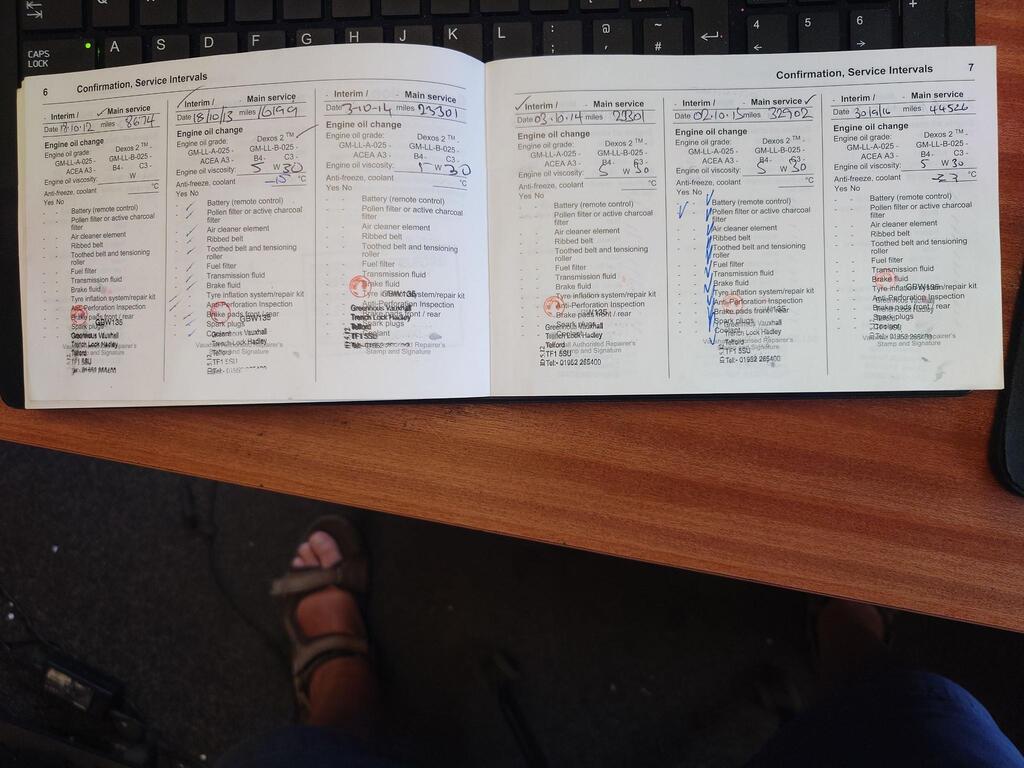 CAPS
LOCK
A S D F G H J K L : ; @ ~ # 4 5 6 +
6 Confirmation, Service Intervals
- Interim / Main service
Date miles 8674
Engine oil change
Engine oil grade: Dexos 2 ™ -
GM-LL-A-025 - GM-LL-B-025 -
ACEA A3 - B4- C3 -
Engine oil viscosity: W
Anti-freeze, coolant °C
Yes No
- - Battery (remote control)
- - Pollen filter or active charcoal
filter
- - Air cleaner element
- - Ribbed belt
- - Toothed belt and tensioning
roller
- - Fuel filter
- - Transmission fluid
- - Brake fluid
- - Tyre inflation system/repair kit
- - Anti-Perforation Inspection
- - Brake pads front / rear
GBW135
Spark plugs
Greenhous Vauxhall
Trench Lock Hadley
Telford
TF1 5SU
Interim / - Main service
Date 18/10/13 miles 16199
Engine oil change
Engine oil grade: Dexos 2 ™ -
GM-LL-A-025 - GM-LL-B-025 -
ACEA A3 - B4- C3 -
Engine oil viscosity: 5 W 30
Anti-freeze, coolant -15 °C
Yes No
Battery (remote control)
Pollen filter or active charcoal
filter
Air cleaner element
Ribbed belt
Toothed belt and tensioning
roller
Fuel filter
Transmission fluid
Brake fluid
Tyre inflation system/repair kit
Anti-Perforation Inspection
Brake pads front / rear
GBW135
Spark plugs
Greenhous Vauxhall
Coolant
Trench Lock Hadley
Telford
TF1 5SU
- Interim / - Main service
Date 3-10-14 miles 23301
Engine oil change
Engine oil grade: Dexos 2 ™ -
GM-LL-A-025 - GM-LL-B-025 -
ACEA A3 - B4- C3 -
Engine oil viscosity: 5 W 30
Anti-freeze, coolant °C
Yes No
Battery (remote control)
Pollen filter or active charcoal
filter
Air cleaner element
Ribbed belt
Toothed belt and tensioning
roller
Fuel filter
Transmission fluid
Brake fluid
Tyre inflation system/repair kit
GBW135
Anti-Perforation Inspection
Greenhous Vauxhall
Brake pads front / rear
Trench Lock Hadley
Spark plugs
Telford
Coolant
TF1 5SU
Stamp and Signature
Confirmation, Service Intervals 7
Interim / - Main service
Date 03.10.14 miles 23301
Engine oil change
Engine oil grade: Dexos 2 ™ -
GM-LL-A-025 - GM-LL-B-025 -
ACEA A3 - B4- C3 -
Engine oil viscosity: 5 W 30
Anti-freeze, coolant °C
Yes No
Battery (remote control)
Pollen filter or active charcoal
filter
Air cleaner element
Ribbed belt
Toothed belt and tensioning
roller
Fuel filter
Transmission fluid
Brake fluid
Tyre inflation system/repair kit
Anti-Perforation Inspection
GBW135
Brake pads front / rear
Spark plugs
Greenhous Vauxhall
Coolant
Trench Lock Hadley
Telford
Authorised Repairer's
TF1 5SU
Stamp and Signature
Tel:- 01952 265400
- Interim / Main service
Date 02.10.15 miles 32902
Engine oil change
Engine oil grade: Dexos 2 ™ -
GM-LL-A-025 - GM-LL-B-025 -
ACEA A3 - B4- C3 -
Engine oil viscosity: 5 W 30
Anti-freeze, coolant °C
Yes No
Battery (remote control)
Pollen filter or active charcoal
filter
Air cleaner element
Ribbed belt
Toothed belt and tensioning
roller
Fuel filter
Transmission fluid
Brake fluid
Tyre inflation system/repair kit
Anti-Perforation Inspection
Brake pads front / rear
Spark plugs
Greenhous Vauxhall
Coolant
Trench Lock Hadley
Telford
TF1 5SU
Tel:- 01952 265400
- Interim / - Main service
Date 30/9/16 miles 44526
Engine oil change
Engine oil grade: Dexos 2 ™ -
GM-LL-A-025 - GM-LL-B-025 -
ACEA A3 - B4- C3 -
Engine oil viscosity: 5 W 30
Anti-freeze, coolant -23 °C
Yes No
Battery (remote control)
Pollen filter or active charcoal
filter
Air cleaner element
Ribbed belt
Toothed belt and tensioning
roller
Fuel filter
Transmission fluid
Brake fluid
Tyre inflation system/repair kit
GBW135
Anti-Perforation Inspection
Brake pads front / rear
Spark plugs
Coolant
TF1 5SU
Authorised Repairer's
Stamp and Signature
Tel:- 01952 265400